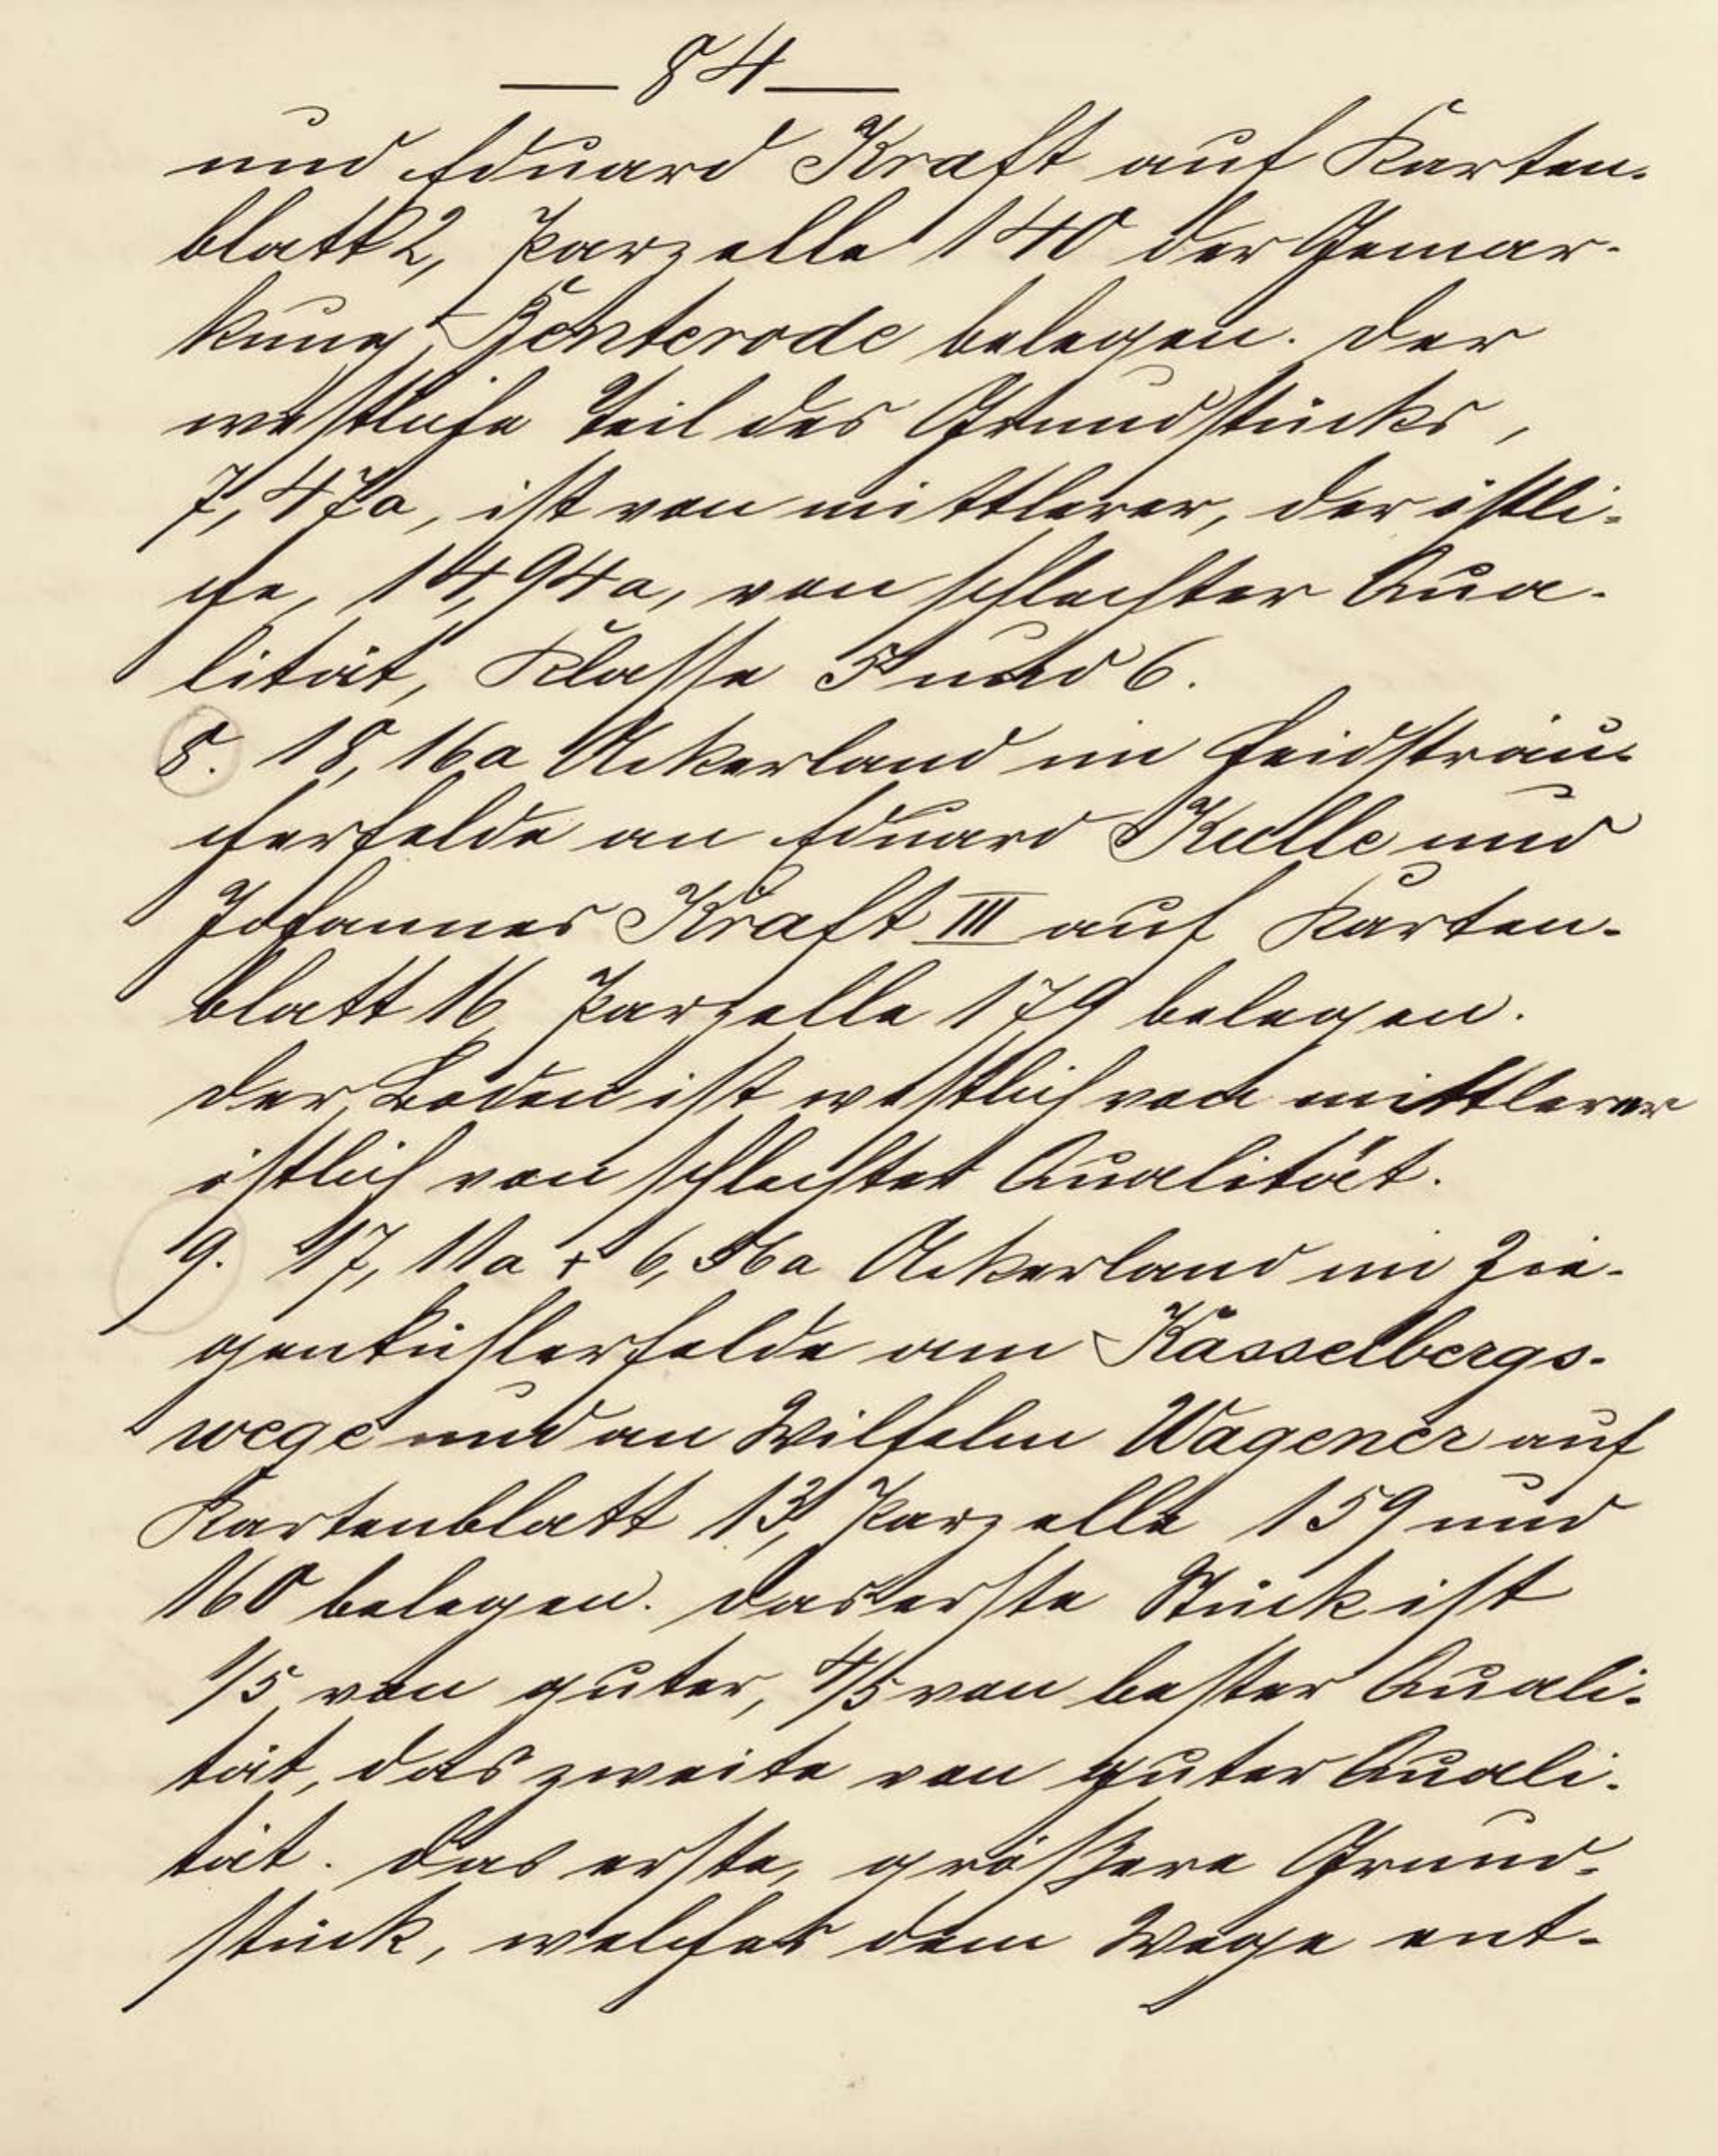 — 84 —
und Eduard Kraft auf Karten-
blatt 2, Parzelle 140 der Gemar-
kung Benterode belegen. Der
westliche Teil des Grundstücks,
7,47a, ist von mittlerer, der östli-
che, 14,94a, von schlechter Qua-
lität, Klasse 5 und 6.
8. 18,16a Ackerland im Heidsträu-
cherfelde an Eduard Kulle und
Johannes Kraft III auf Karten-
blatt 16 Parzelle 179 belegen.
Der Boden ist westlich von mittlerer
östlich von schlechter Qualität.
9. 17,11a + 6,56a Ackerland im Zie-
genbühlerfelde am Kasselbergs-
wege und an Wilhelm Wagener auf
Kartenblatt 13, Parzelle 159 und
160 belegen. Das erste Stück ist
1/5 von guter, 4/5 von bester Quali-
tät, das zweite von guter Quali-
tät. Das erste, größere Grund-
stück, welches dem Wege ent-